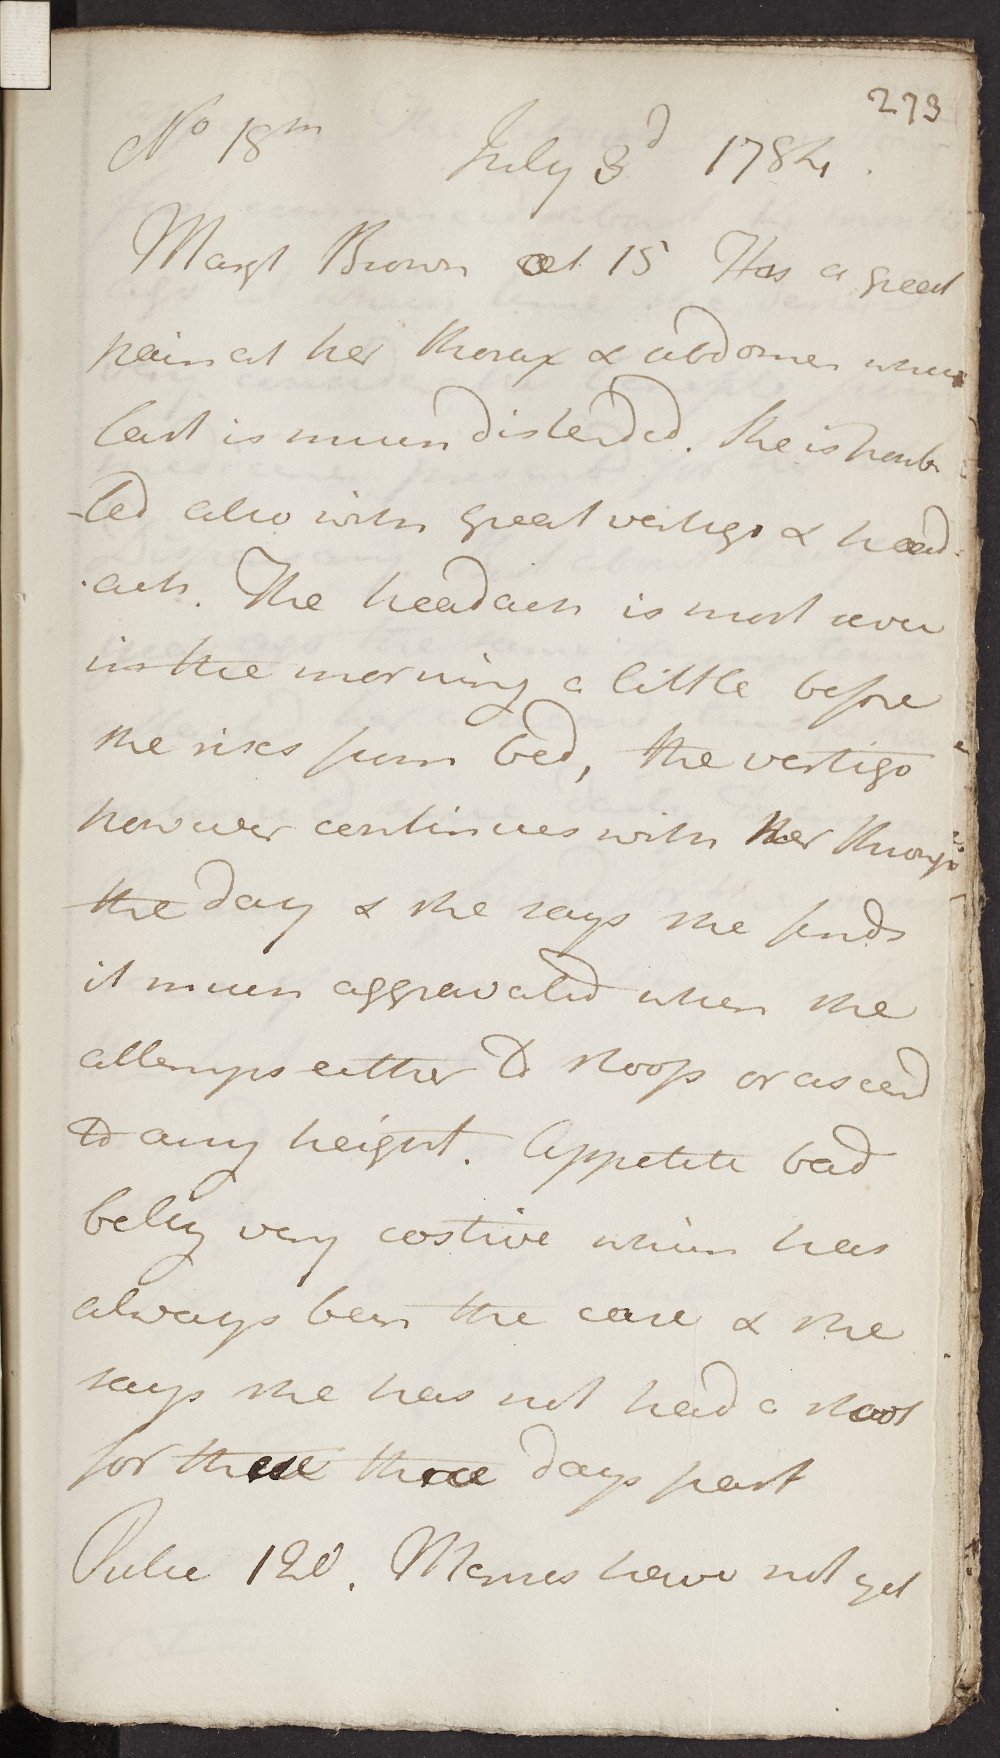 273
No 18th July 3d 1784.
Margt Brown aet 15 Has a great
pain at her thorax & abdomen which
last is much distended. She is troub
-led also with great vertigo & head-
-ach. The headach is most severe
in the morning a little before
she rises from bed, the vertigo
however continues with her through
the day & she says she finds
it much aggravated when she
attemps either to stoop or ascend
to any height. Appetite bad
belly very costive which has
always been the case & she
says she has not had a stool
for these three days past
Pulse 120. Menses have not yet